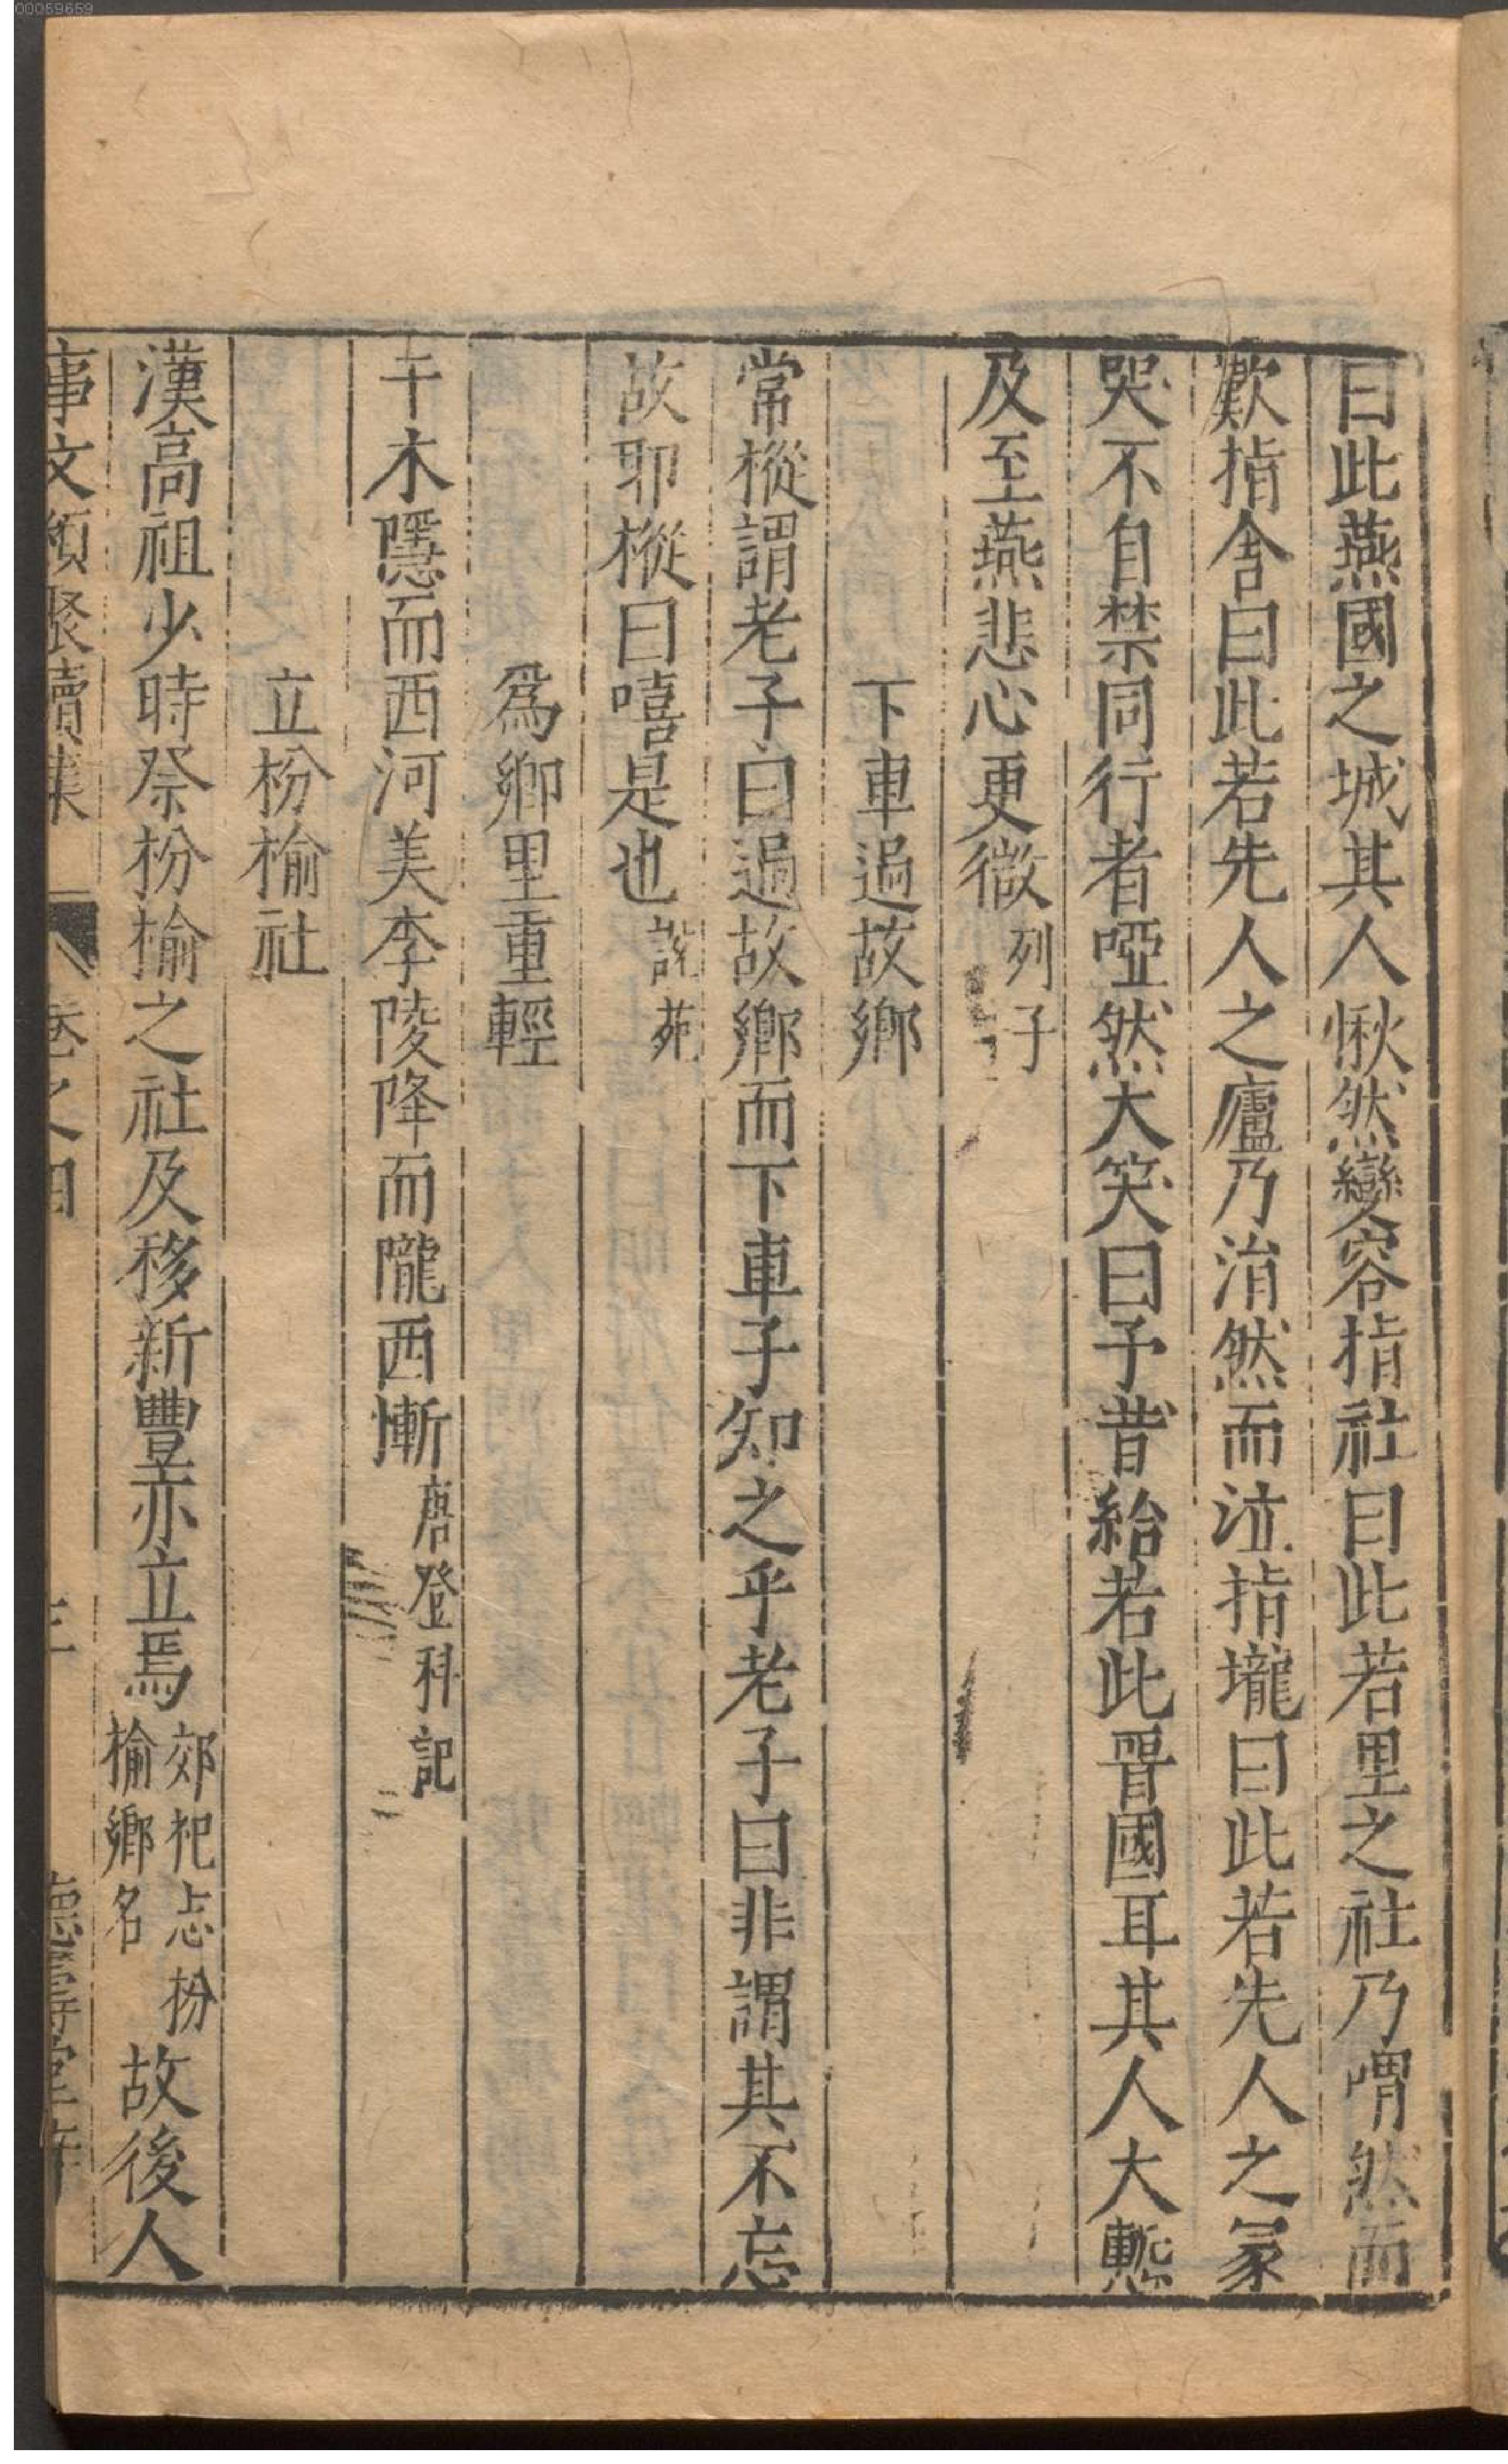 00059659
曰此燕國之城其人愀然變容指社曰此若里之社乃喟然而
歎指舍曰此若先人之廬乃涓然而泣指壠曰此若先人之冢
哭不自禁同行者啞然大笑曰予昔紿若此晉國耳其人大慙
及至燕悲心更微列子
下車過故鄉
常樅謂老子曰過故鄉而下車子知之乎老子曰非謂其不忘
故耶樅曰嘻是也說苑
爲鄉里重輕
干木隱而西河美李陵降而隴西慚唐登科記
立枌榆社
漢高祖少時祭枌榆之社及移新豐亦立焉郊祀志枌榆鄉名故後人
事文類聚續集 卷之四 德壽堂